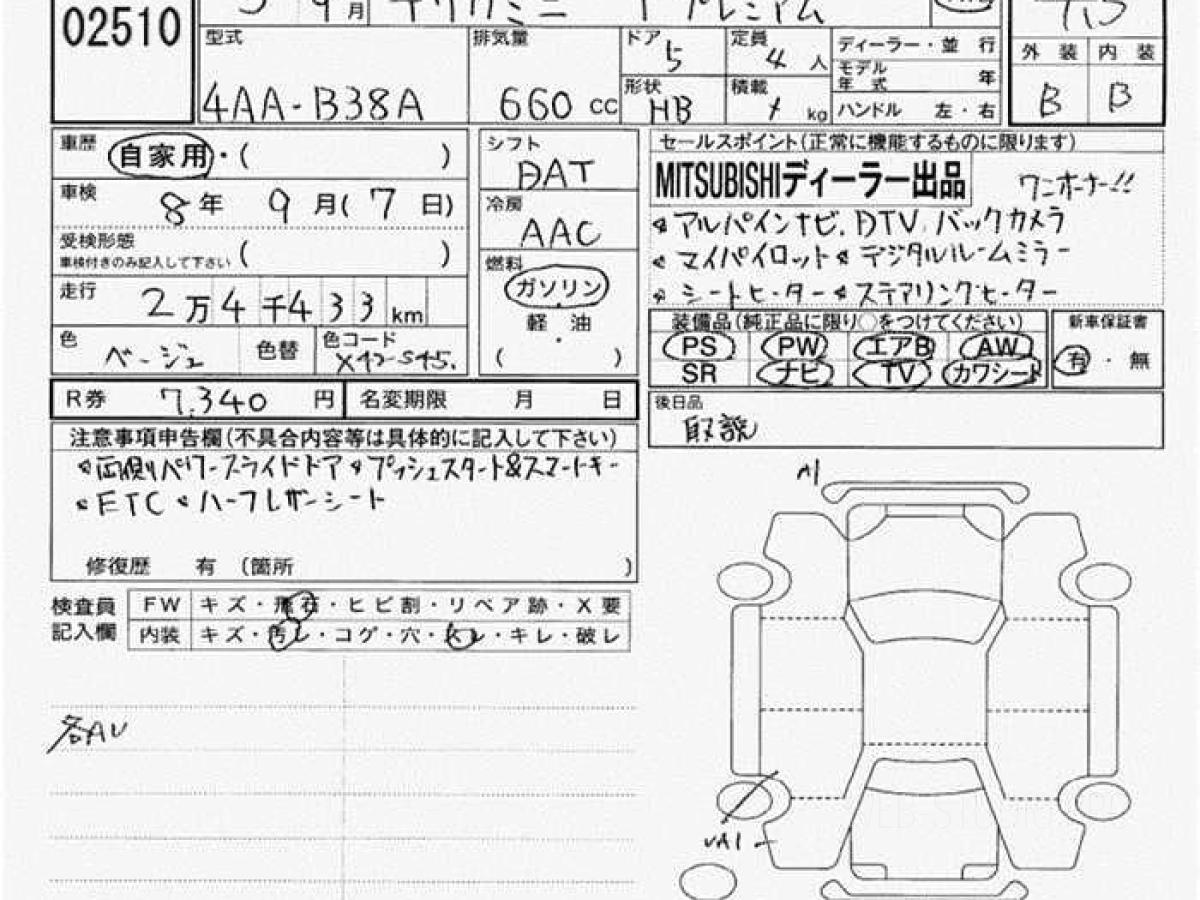 02510
5 9月 デリカミニ T プレミアム
型式 4AA-B38A
排気量 660 cc
ドア 5
定員 4 人
形状 HB
積載 kg
ディーラー・並行
モデル年式 年
ハンドル 左・右
外装 内装
B B
車歴 自家用・( )
車検 8年 9月(7日)
受検形態
車検付きのみ記入して下さい ( )
走行 2万4千433km
色 ベージュ 色替 色コード X42-S45.
シフト DAT
冷房 AAC
燃料 ガソリン
軽油
( )
セールスポイント(正常に機能するものに限ります)
MITSUBISHIディーラー出品 ワンオーナー!!
アルパインナビ.DTV.バックカメラ
マイパイロット デジタルルームミラー
シートヒーター ステアリングヒーター
装備品(純正品に限り○をつけてください)
PS PW エアB AW
SR ナビ TV カワシート
新車保証書
有・無
R券 7,340 円 名変期限 月 日
後日品
取説
注意事項申告欄(不具合内容等は具体的に記入して下さい)
両側パワースライドドア プッシュスタート&スマートキー
ETC ハーフレザーシート
修復歴 有 (箇所 )
検査員記入欄
FW キズ・飛石・ヒビ割・リペア跡・X要
内装 キズ・汚レ・コゲ・穴・スレ・キレ・破レ
各AU
A1
UA1